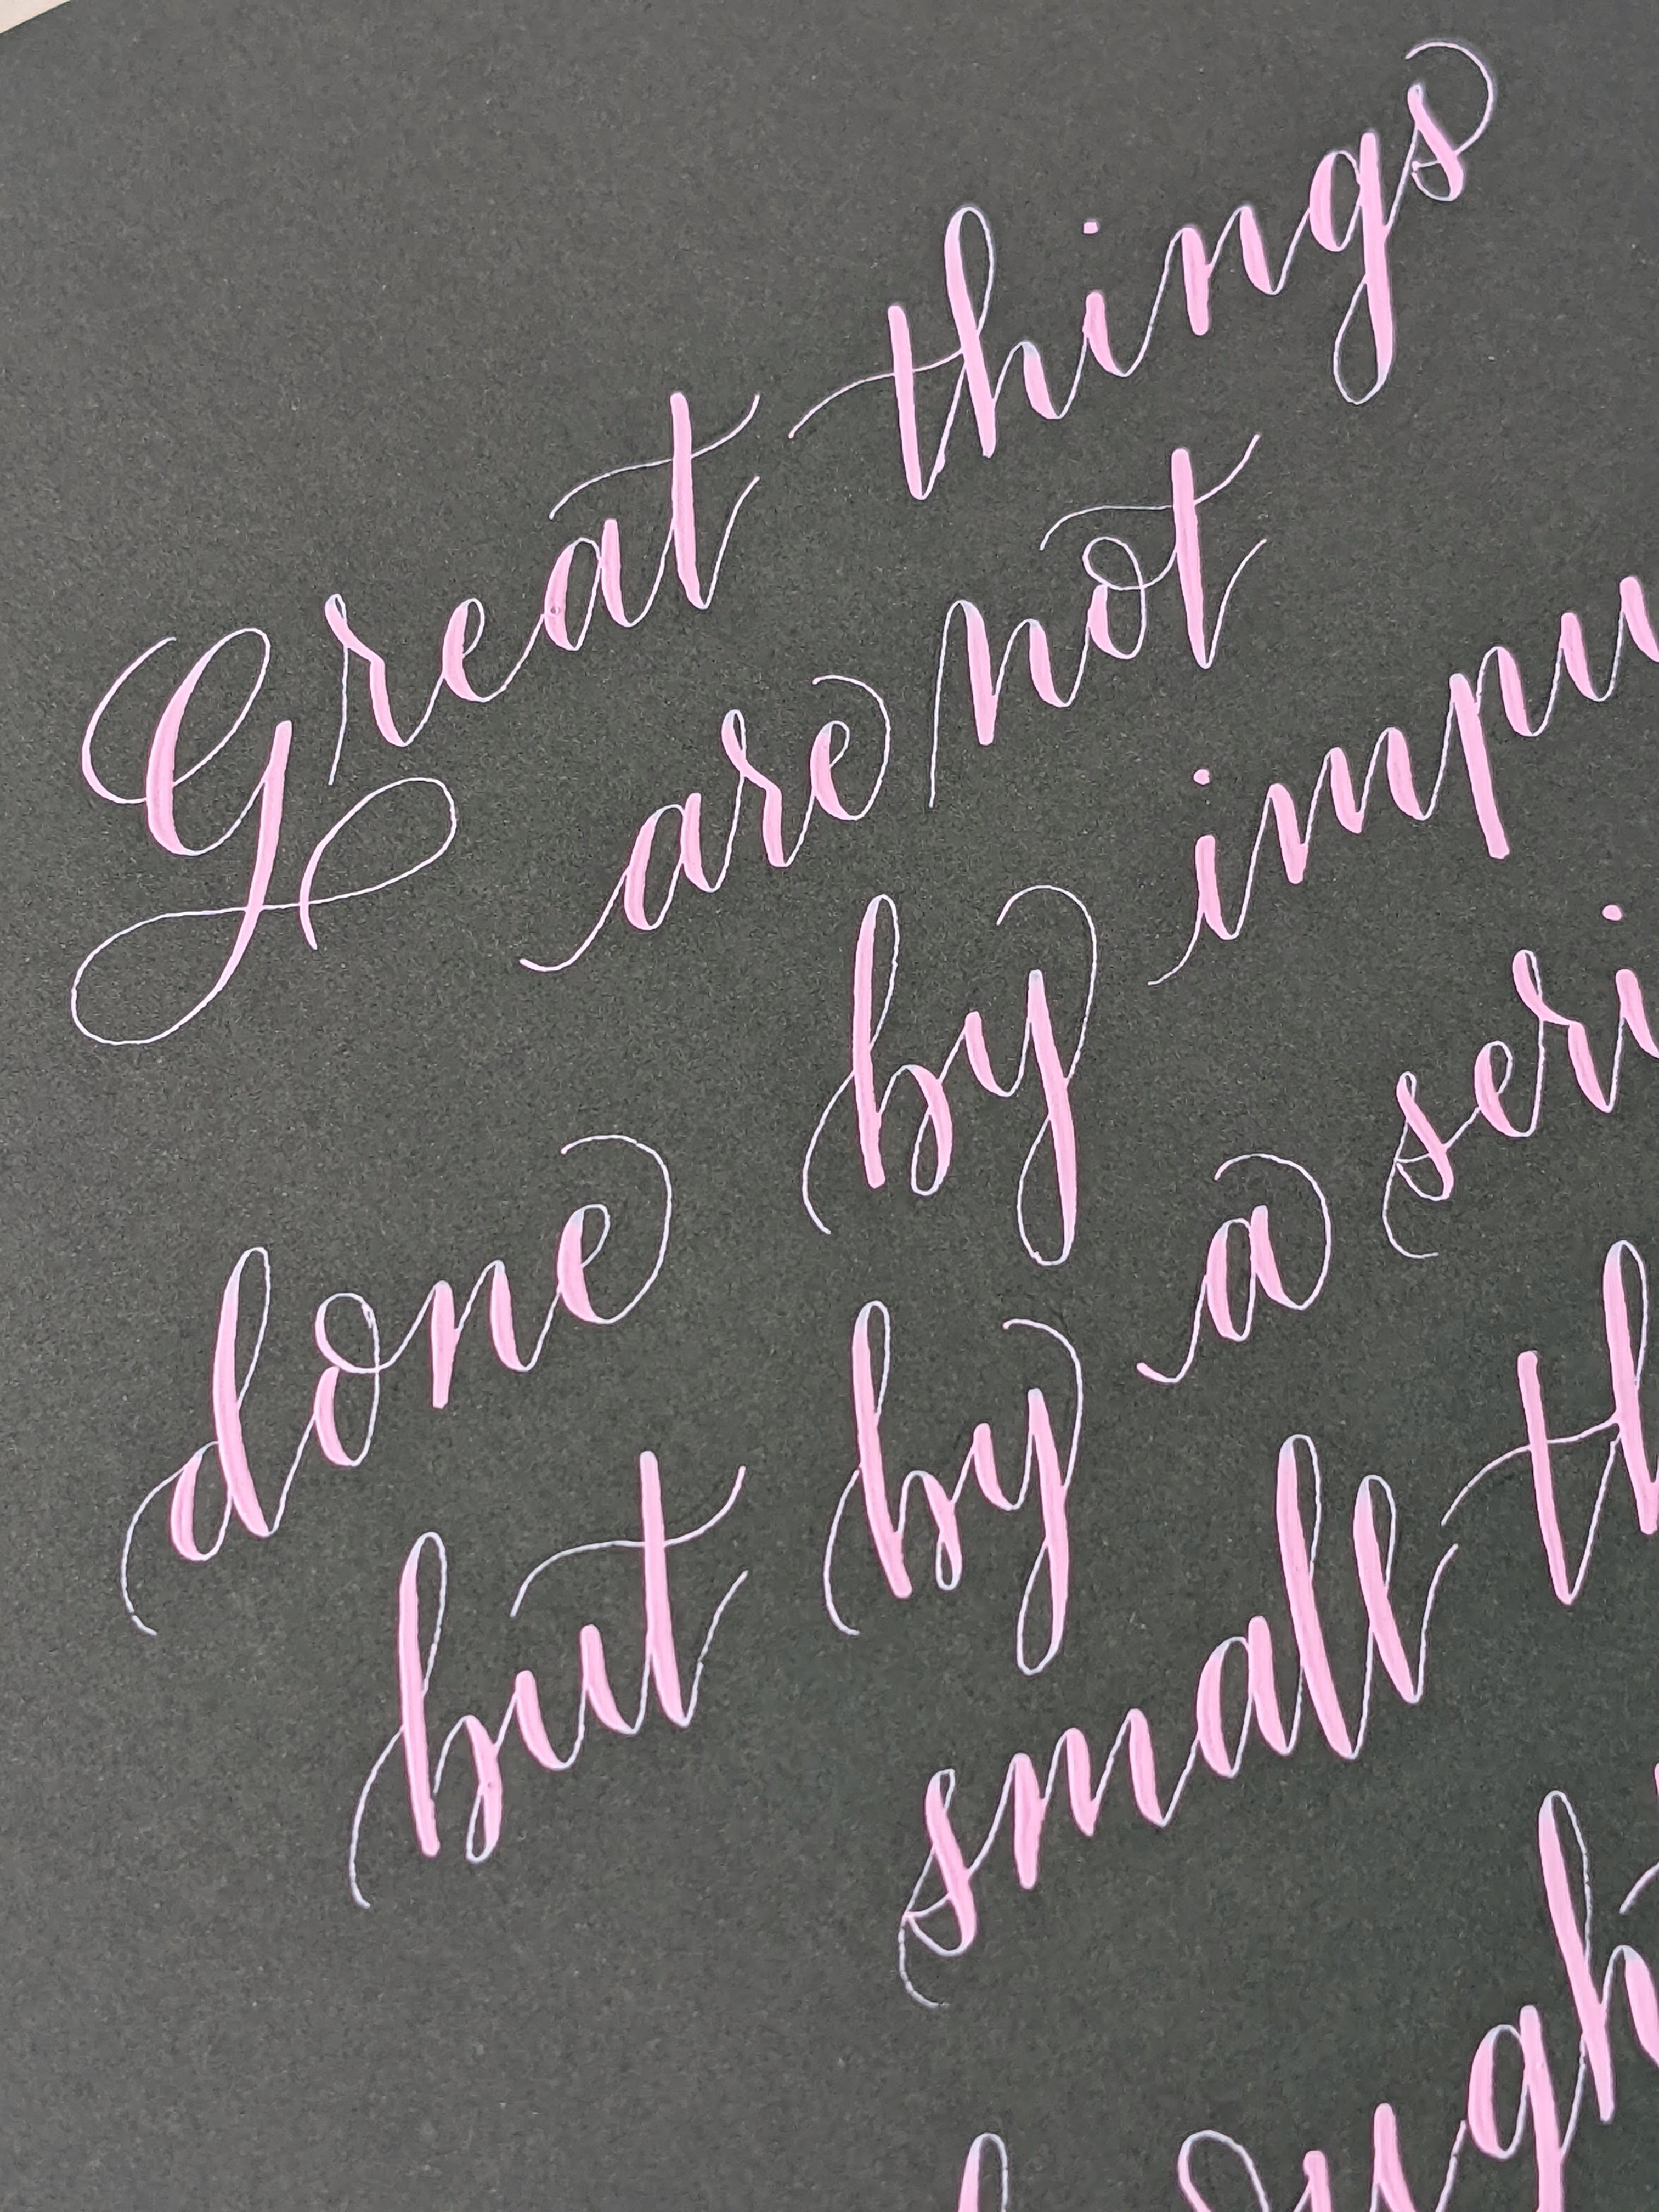 Great things
are not
done by impu
but by a seri
small th